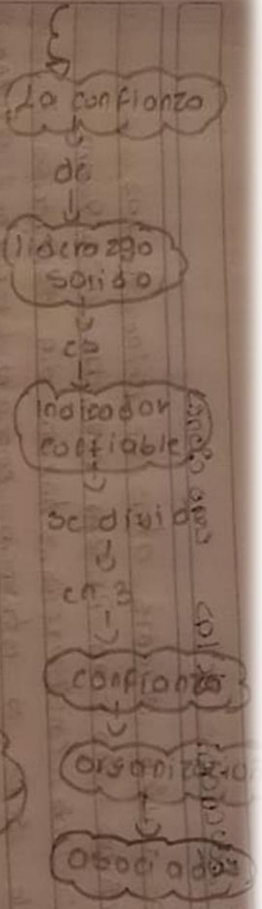 La confianza
de
liderazgo
solido
es
indicador
confiable
se divide
en 3
confianza
asociada